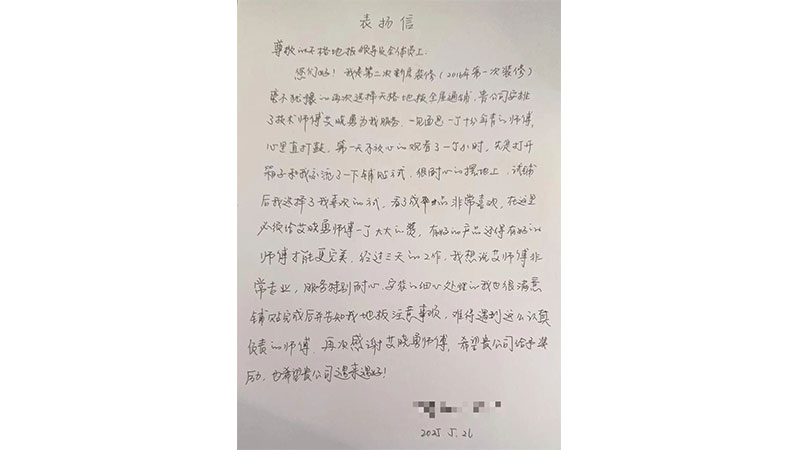 表扬信
尊敬的天格地板领导及全体员工：
您们好！我是第二次新房装修（2016年第一次装修）
毫不犹豫的再次选择天格地板全屋通铺，贵公司安排
了技术师傅艾晓勇为我服务，一见面是一个十分年青的师傅，
心里直打鼓，第一天不放心的观看了一个小时，先是打开
箱子和我交流了一下铺贴方式，很耐心的摆地上，试铺
后我选择了我喜欢的方式，看了成品非常喜欢，在这里
必须给艾晓勇师傅一个大大的赞，有好的产品还得有好的
师傅才能更完美，经过三天的工作，我想说艾师傅非
常专业，服务特别耐心，安装的细心处理的我也很满意
铺贴完成后并告知我地板注意事项，难得遇到这么认真
负责的师傅，再次感谢艾晓勇师傅，希望贵公司给予奖
励，也希望贵公司越来越好！
2025.5.26